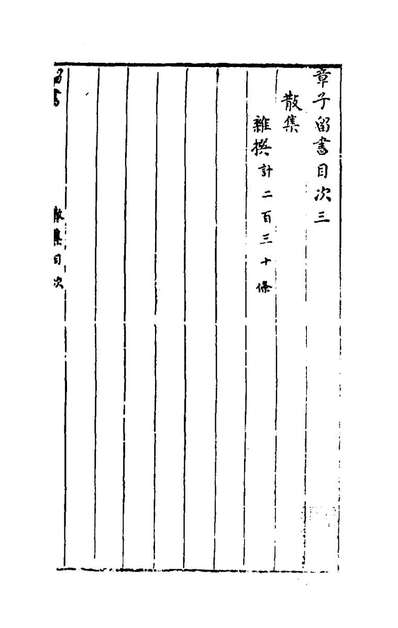 章子留書目次三
散集
雜撰計二百三十條
留書
散集目次